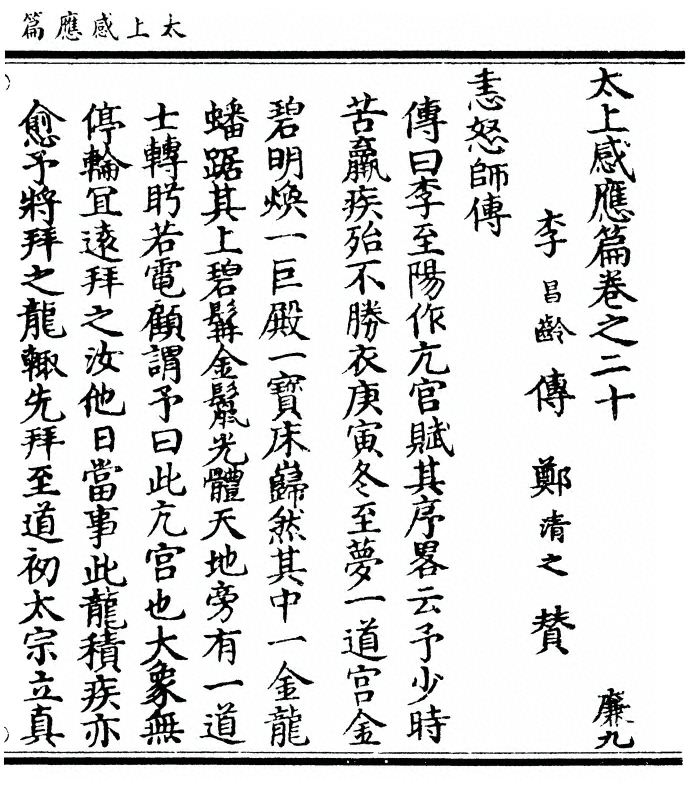 太上感應篇
太上感應篇卷之二十 廉九
李昌齡傳 鄭清之贊
恚怒師傅
傳曰李至陽作亢官賦其序畧云予少時
苦羸疾殆不勝衣庚寅冬至夢一道宮金
碧明煥一巨殿一寶床巋然其中一金龍
蟠踞其上碧鬅金鬣光體天地旁有一道
士轉眄若電顧謂予曰此亢宮也大象無
停輪冝遠拜之汝他日當事此龍積疾亦
愈予將拜之龍輙先拜至道初太宗立真